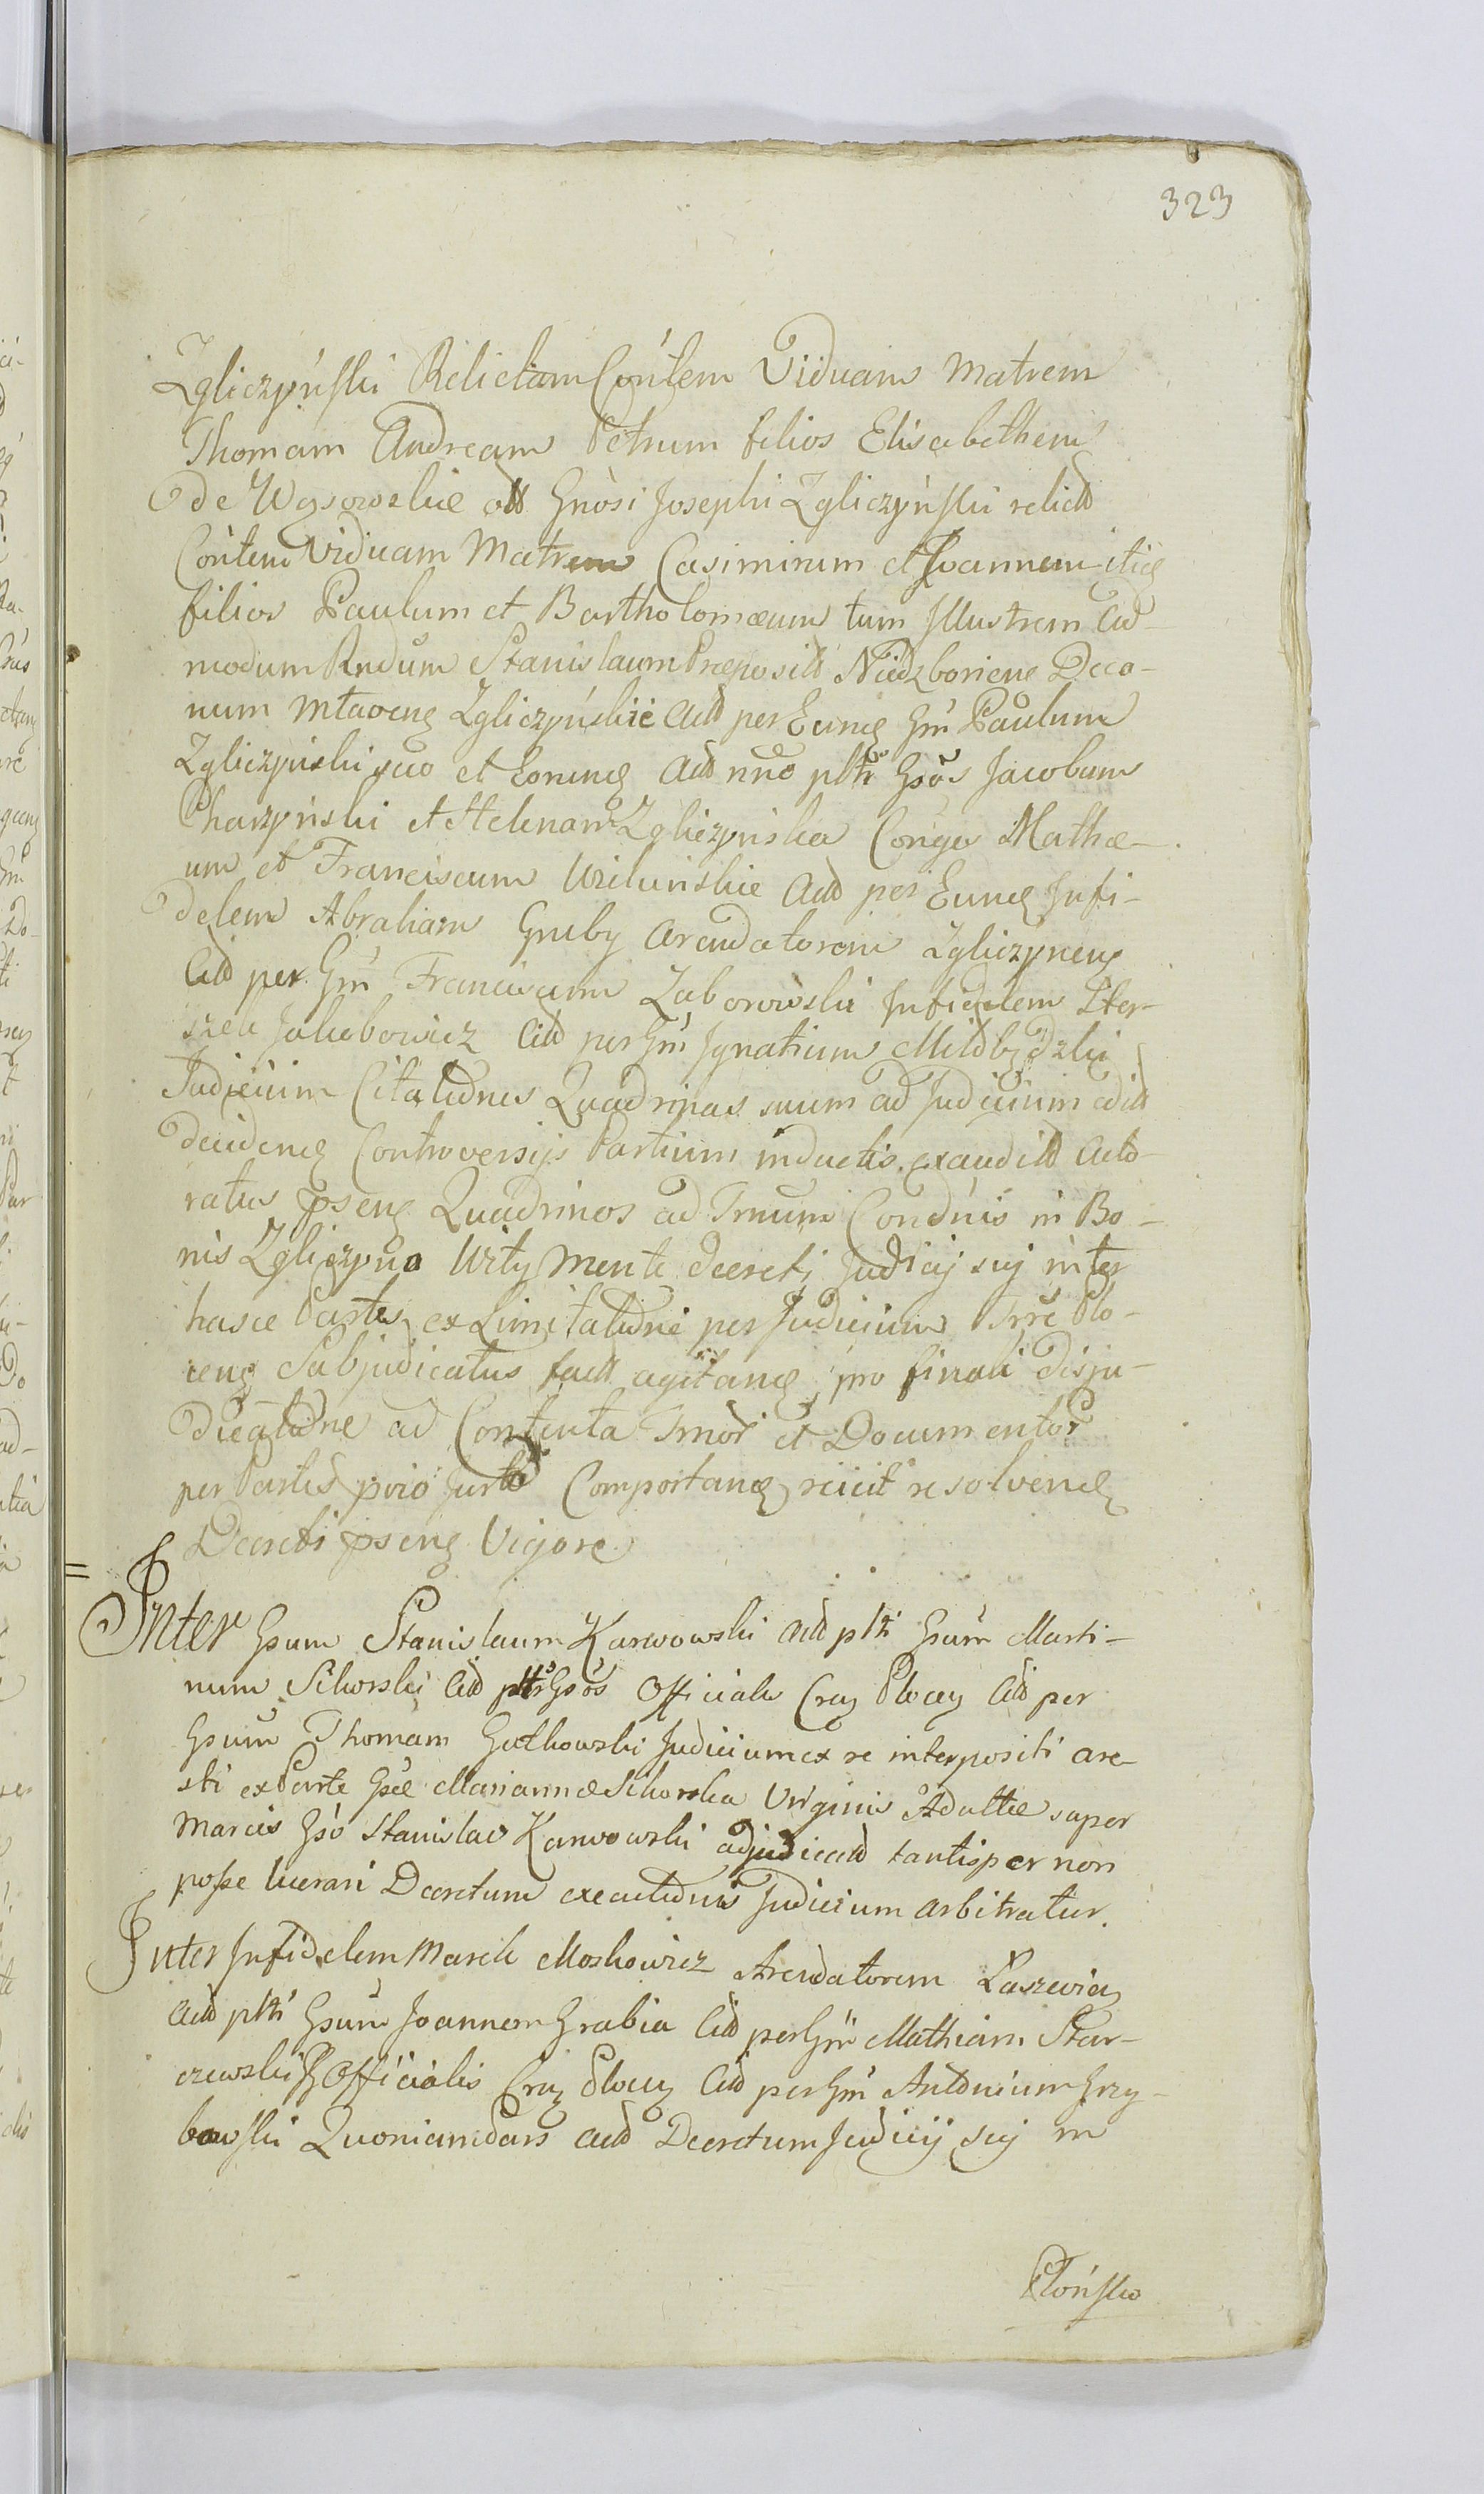 323
Zgliczyński Relictam Contem Viduam Matrem
Thomam Andream Petrum filios Elisabethem
de Wysowskie olt Gnosi Josephi Zgliczyński relictt
Contem Viduam Matrem Casimirum et Joannem itiq
filios Paulum et Bartholomæum tum Illustrem Ad-
modum Rndum Stanislaum Præposilt Niedzboriens Deca-
num Mławens Zgliczyńskie Actt per Eundq Gm Paulum
Zgliczyński suo et Eorumq Actt nne Gsos Jacobum
Charzyński et Helenam Zgliczyńska Conges Mathæ-
um et Franciscum Uzieluńskie Actt per Eundq Infi-
delem Abraham Gruby Arendatorem Zgliczynens
Citt per Gm Franciscum Zaborowski Infidelem Her-
szek Jakubowicz Citt per Gm Ignatium
Judicium Citationes Quadrinas suum ad Judicium editt
decidenq Controversijs Partium inductis exauditt Acto-
ratus psens Quadrinos ad Trnum Condnis in Bo-
nis Zgliczyno Urzty Mente Decreti Judicij sui inter
hasce Partes ex Limitatione per Judicium Trre Plo-
cens Subjudicatus factt agitanq pro finali disju-
dicatione ad Contenta Tmor et Documentor
per Partes prio Jurto Comportanq reiicit resolvenq
Decreti psens Vigore
= Inter Gsum Stanislaum Karwowski Actt pltt Gsum Marti-
num Sikorski Citt Gsos Officiales Cras Plocen Citt per
Gsum Thomam Gutkowski Judicium ex re interpositi are-
sti ex Parte Gsæ Mariannæ Sikorska Virginis Adultæ super
Marcis Gso Stanislao Karwowski adjudicatt tantisper non
posse lucrari Decretum executionis Judicium arbitratur.
Inter Infidelem Marek Moskowicz Arendatorem
Actt pltt Gsum Joannem Grabia Citt per Gm Mathiam Star-
czewski Officialis Cras Plocen Citt per Gm Antonium Grzy-
bowski Quoniam Pars Actt Decretum Judicij sui in
Płońsko